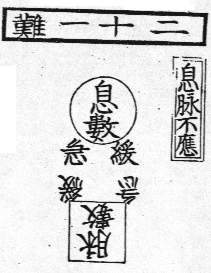 二十一難
息脉不應
息數
緩
急
急
緩
脉數